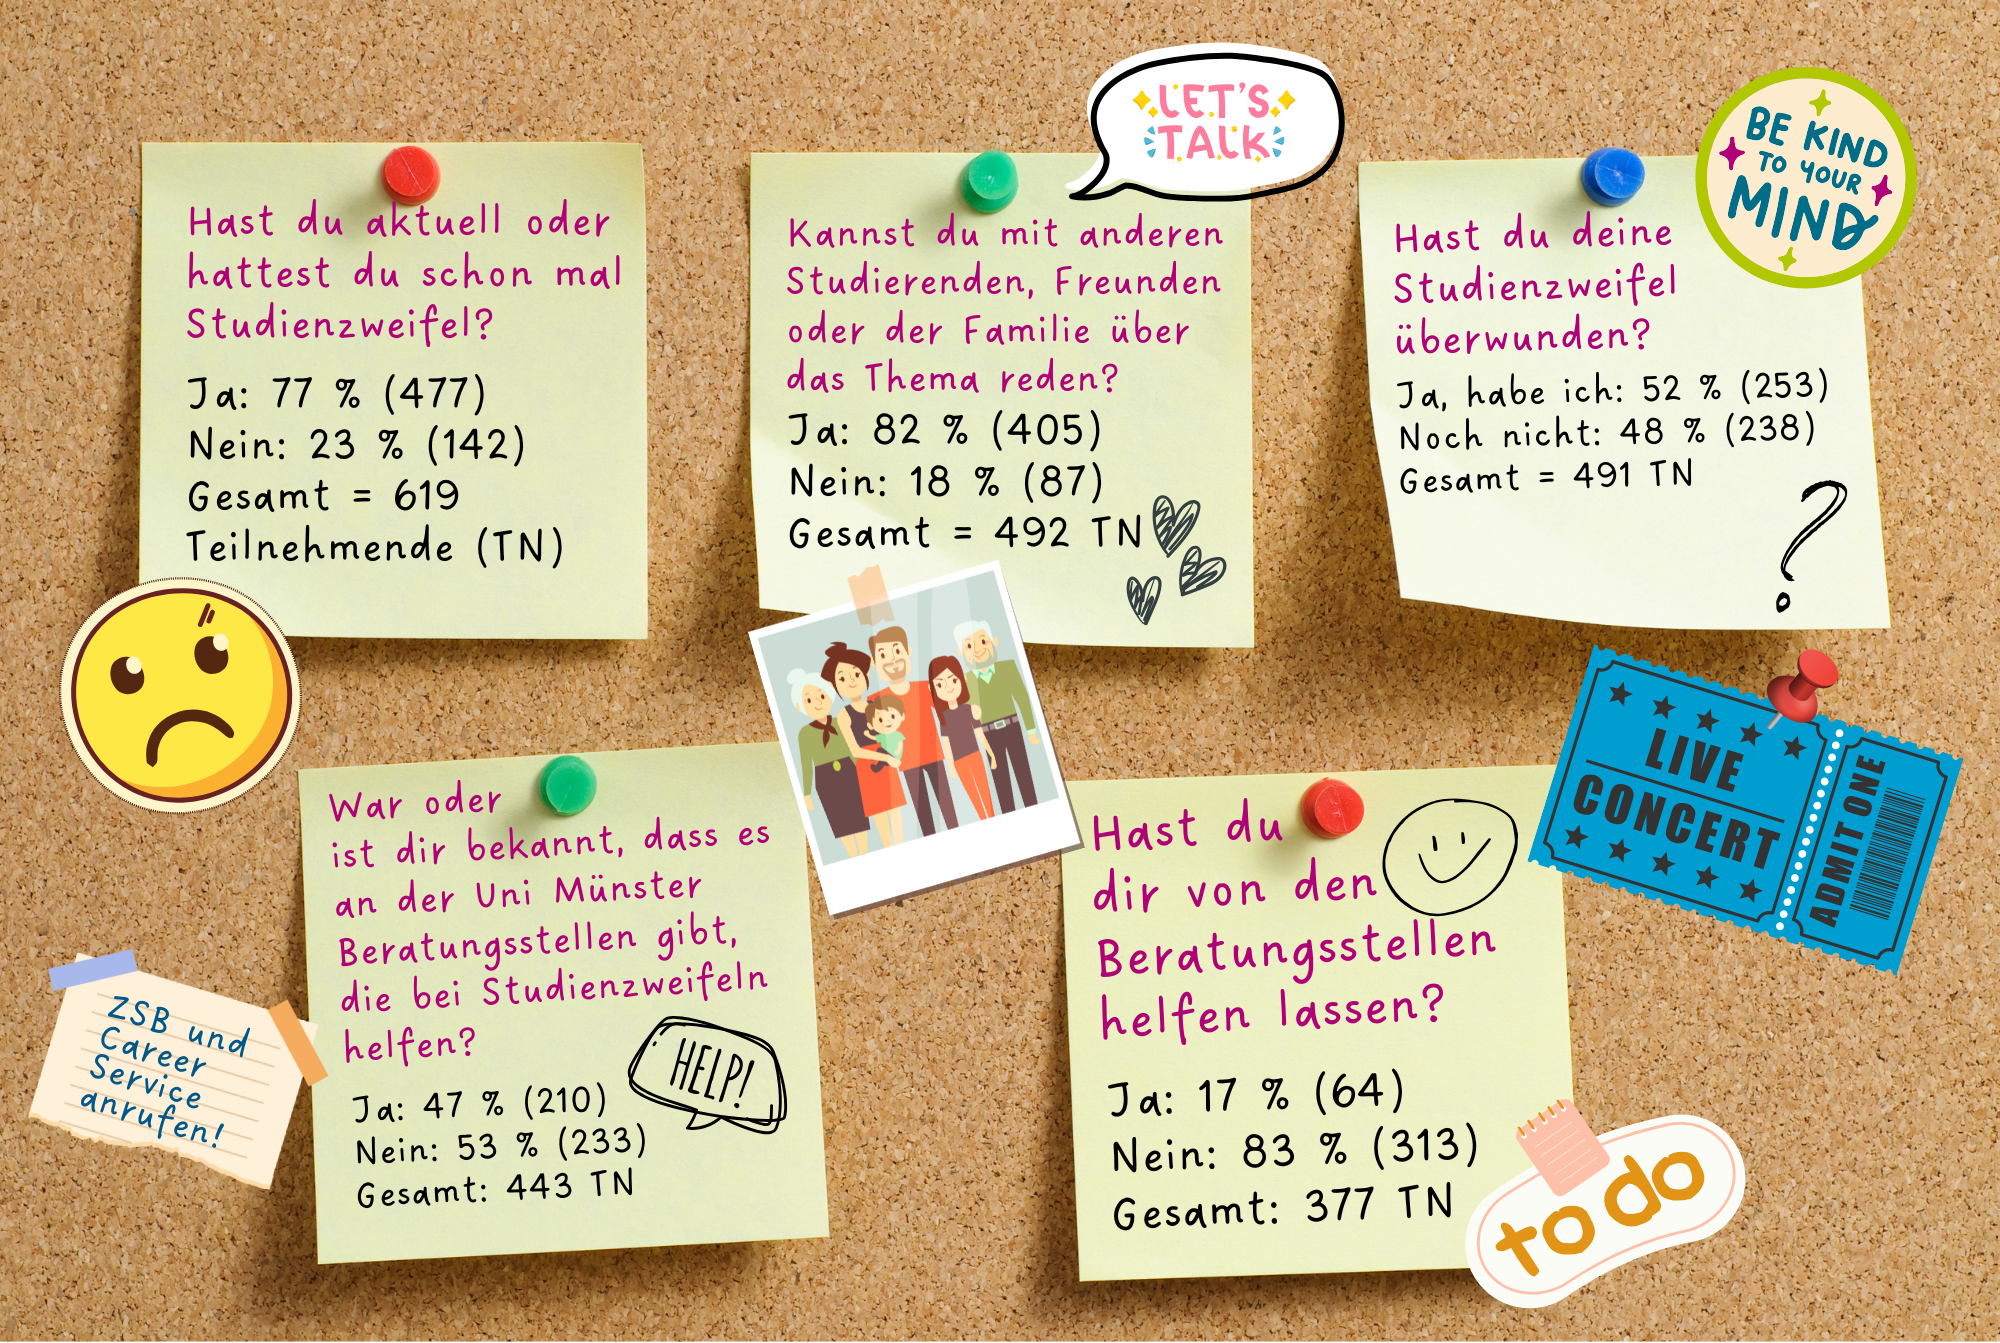 Hast du aktuell oder
hattest du schon mal
Studienzweifel?
Ja: 77 % (477)
Nein: 23 % (142)
Gesamt = 619
Teilnehmende (TN)
LET'S
TALK
Kannst du mit anderen
Studierenden, Freunden
oder der Familie über
das Thema reden?
Ja: 82 % (405)
Nein: 18 % (87)
Gesamt = 492 TN
BE KIND
TO YOUR
MIND
Hast du deine
Studienzweifel
überwunden?
Ja, habe ich: 52 % (253)
Noch nicht: 48 % (238)
Gesamt = 491 TN
?
LIVE
CONCERT
ADMIT ONE
War oder
ist dir bekannt, dass es
an der Uni Münster
Beratungsstellen gibt,
die bei Studienzweifeln
helfen?
HELP!
Ja: 47 % (210)
Nein: 53 % (233)
Gesamt: 443 TN
ZSB und
Career
Service
anrufen!
Hast du
dir von den
Beratungsstellen
helfen lassen?
Ja: 17 % (64)
Nein: 83 % (313)
Gesamt: 377 TN
to do